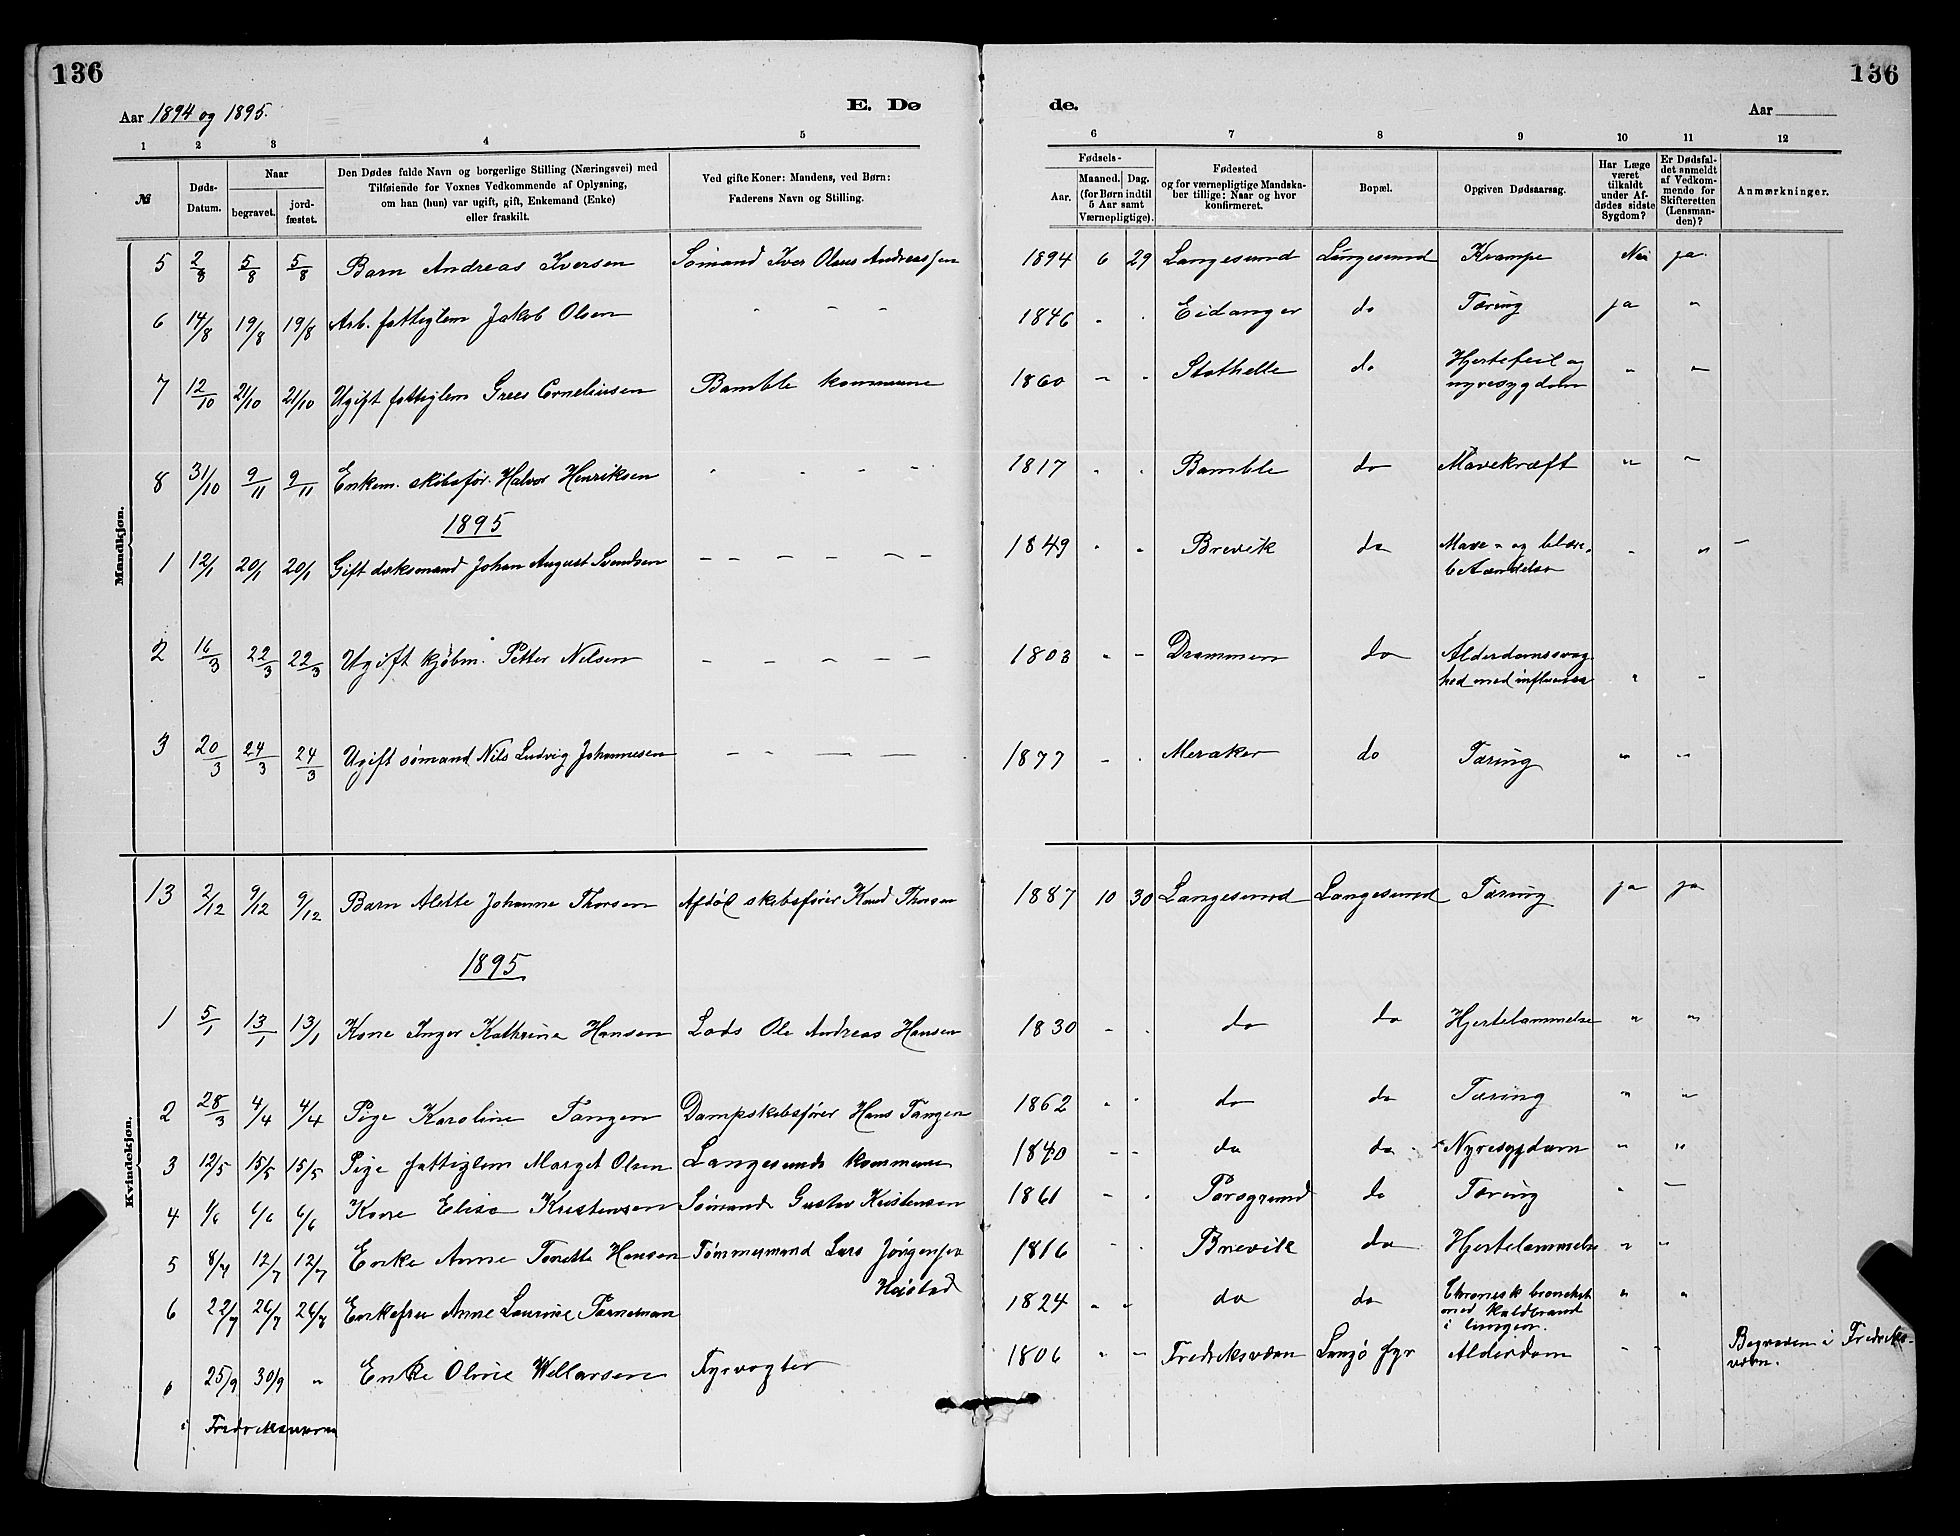 136
136
Aar 1894 og 1895.
E. Dø
de.
Aar
1 2 3 4 5 6 7 8 9 10 11 12
№
Døds-Datum.
Naar
begravet.
jordfæstet.
Den Dødes fulde Navn og borgerlige Stilling (Næringsvei) med
Tilføiende for Voxnes Vedkommende af Oplysning,
om han (hun) var ugift, gift, Enkemand (Enke)
eller fraskilt.
Ved gifte Koner: Mandens, ved Børn:
Faderens Navn og Stilling.
Fødsels-
Aar.
Maaned. Dag.
(for Børn indtil
5 Aar samt
Værnepligtige).
Fødested
og for værnepligtige Mandska-
ber tillige: Naar og hvor
konfirmeret.
Bopæl.
Opgiven Dødsaarsag.
Har Læge
været
tilkaldt
under Af-
dødes sidste
Sygdom?
Er Dødsfal-
det anmeldt
af Vedkom-
mende for
Skifteretten
(Lensman-
den)?
Anmærkninger.
Mandkjøn.
5 2/8 5/8 5/8 Barn Andreas Iversen Sømand Iver Olaus Andreassen 1894 6 29 Langesund Langesund Krampe Nei ja.
6 14/8 19/8 19/8 Arb. fattiglem Jakob Olsen - - - 1846 - - Eidanger do Tæring ja "
7 12/10 21/10 21/10 Ugift fattiglem Grees Corneliusen Bamble kommune 1860 - - Stathelle do Hjertefeil og
nyresygdom " "
8 31/10 9/11 9/11 Enkem. skibsfør. Halvor Henriksen - - - - 1817 - - Bamble do Mavekræft " "
1895
1 12/1 20/1 20/1 Gift doksmand Johan August Svendsen - - - - - 1849 " " Brevik do Mave- og blære-
betændelse " " -
2 16/3 22/3 22/3 Ugift kjøbm. Petter Nilsen - - - - - 1803 " - Drammen do Alderdomssvag-
hed med influensa " "
3 20/3 24/3 24/3 Ugift sømand Nils Ludvig Johannesen - - - - 1877 - - Meraker do Tæring " "
Kvindekjøn.
13 2/12 9/12 9/12 Barn Alette Johanne Thorsen Afdød skibsfører Knud Thorsen 1887 10 30 Langesund Langesund Tæring ja ja
1895
1 5/1 13/1 13/1 Kone Inger Kathrine Hansen Lods Ole Andreas Hansen 1830 - - do do Hjertelammelse " "
2 28/3 4/4 4/4 Pige Karoline Tangen Dampskibsfører Hans Tangen 1862 - - do do Tæring " "
3 12/5 15/5 15/5 Pige fattiglem Marget Olsen Langesunds kommune 1840 - - do do Nyresygdom " "
4 1/6 6/6 6/6 Kone Elise Kristensen Sømand Gustav Kristensen 1861 - - Porsgrund do Tæring " "
5 8/7 12/7 12/7 Enke Anne Tonette Hansen Tømmermand Lars Jørgensen
Heistad 1816 - - Brevik do Hjertelammelse " "
6 22/7 26/7 26/7 Enkefrue Anne Laurine Parneman 1824 " " do do Chronisk bronchit
med koldbrand
i lungen. " "
25/9 30/9 " Enke Oline Wellarsen Fyrvogter 1806 " - Fredriksværn Langø fyr Alderdom " " Begraven i Fredriks-
værn.
i Fredriksværn